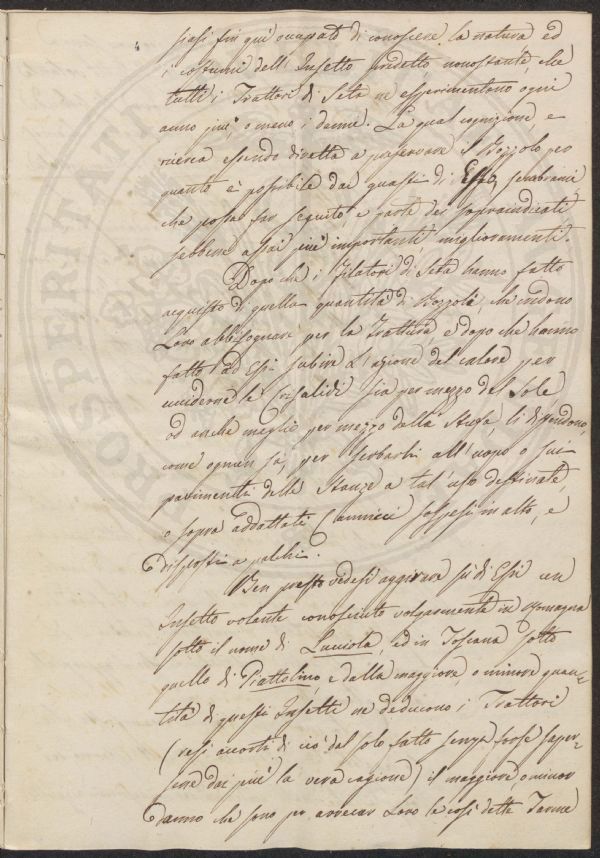 siasi fin qui occupato di conoscere la natura ed
i costumi dell'Insetto predetto, nonostante, che
tutti i Trattori di Seta ne esperimentono ogni
anno più o meno i danni. La qual cognizione e
ricerca essendo diretta a preservare il Bozzolo per
quanto è possibile dai guasti di Esso, sembrami
che possa far seguito, e parte dei sopraindicati
sebbene assai più importanti miglioramenti.
Dopo che i Filatori di Seta hanno fatto
acquisto di quella quantità di Bozzoli, che vedono
Loro abbisognare per la Trattura, e dopo che hanno
fatto ad Essi subire L'azione del calore per
ucciderne le Crisalidi sia per mezzo del Sole
od anche meglio per mezzo della Stufa, li distendono,
come ognun sa, per serbarli all'uopo o sui
pavimenti delle Stanze a tal uso destinate,
o sopra addattati Cannicci sospesi in alto, e
disposti a palchi.
Ben presto vedesi aggirare su di Essi un
Insetto volante conosciuto volgarmente in Romagna
sotto il nome di Lucciola, ed in Toscana sotto
quello di Piattolino, e dalla maggiore, o minore quan-
tità di questi Insetti ne deducono i Trattori
(resi accorti di ciò dal solo fatto senza forse saper-
sene dai più la vera cagione) il maggiore, o minor
danno che sono per arrecar Loro le così dette Tarme
ROSPERITATI